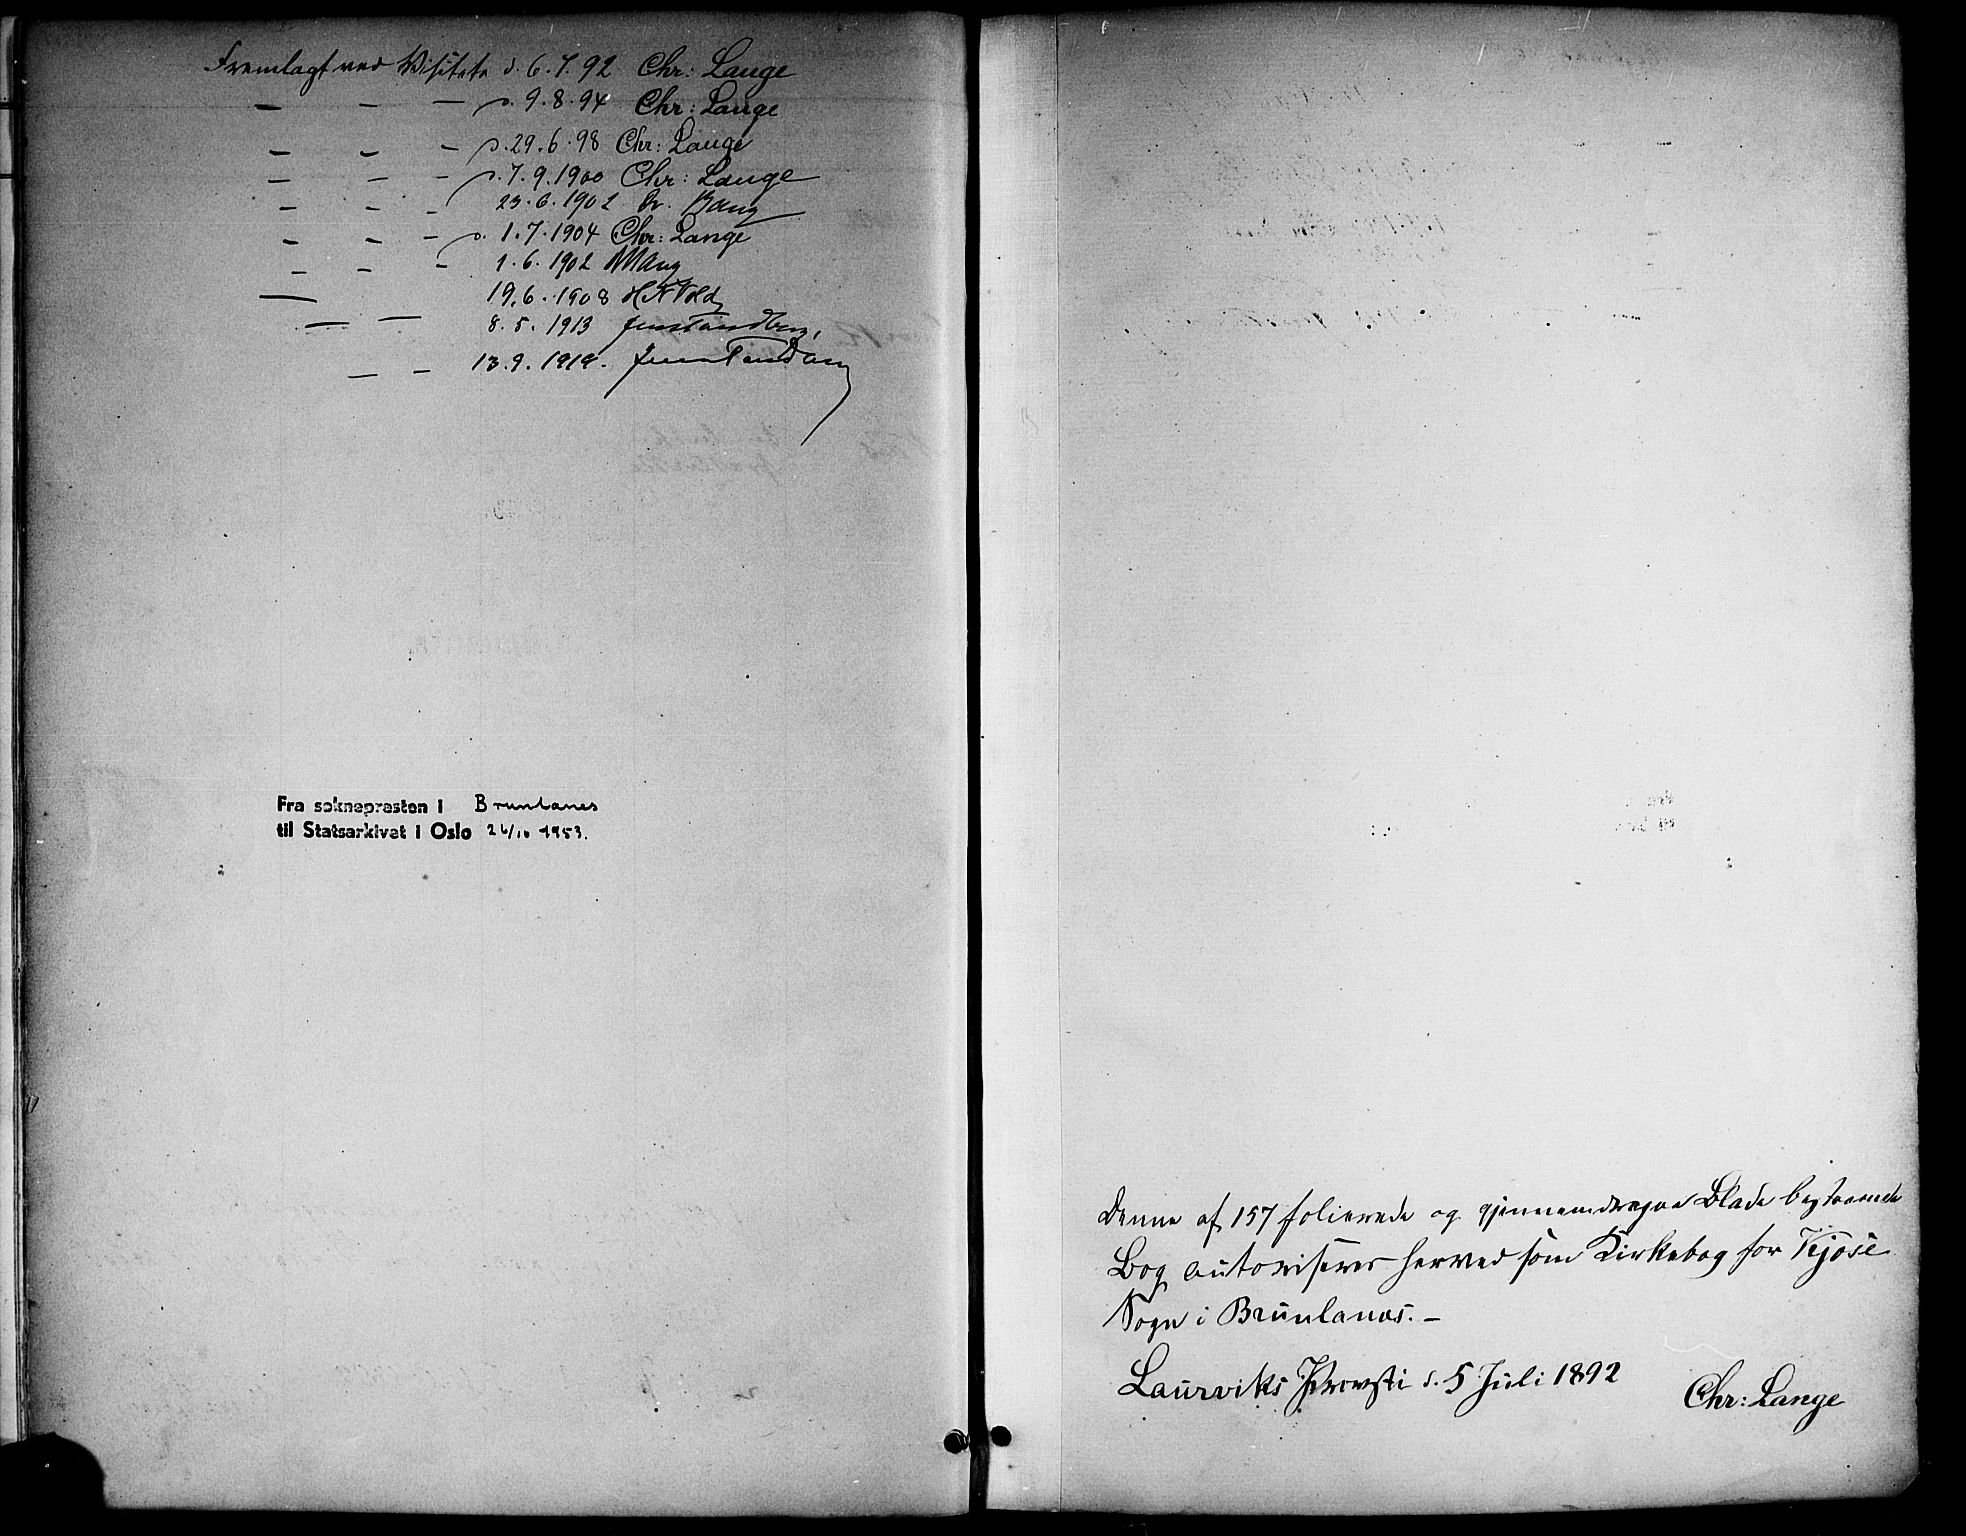 Fremlagt ved Visitats d. 6.7.92 Chr: Lange
— — — d. 9.8.94 Chr: Lange
— — — d. 29.6.98 Chr: Lange
— — — d. 7.9.1900 Chr: Lange
— — — 23.6.1902 Bang
— — — d. 1.7.1904 Chr: Lange
— — — 1.6.1902
— 19.6.1908
— — 8.5.1913 Jens Tandberg.
— — 13.9.1919. Jens Tandberg
Fra soknepresten i Brunlanes
til Statsarkivet i Oslo 26/10 1953.
Denne af 157 folierede og gjennemdragne Blade bestaaende
Bog autoriseres herved som Kirkebog for Kjose
Sogn i Brunlanes. —
Laurviks Provsti d. 5 Juli 1892
Chr: Lange